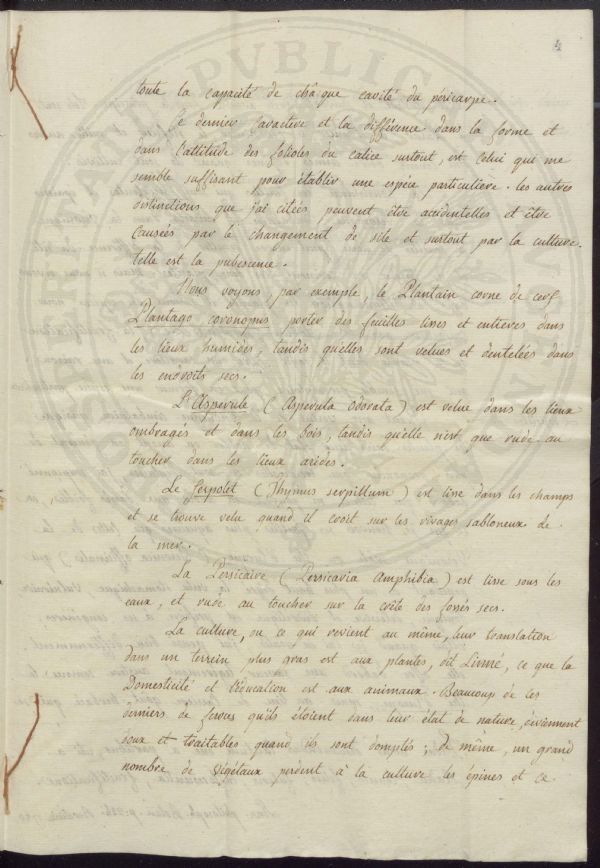 4
toute la capacité de châque cavité du péricarpe.
Ce dernier caractere et la différence dans la forme et
dans l'attitude des folioles du calice surtout, est celui qui me
semble suffisant pour établir une espéce particuliere. les autres
distinctions que j'ai citées peuvent être accidentelles et être
causées par le changement de site et surtout par la culture.
telle est la pubescence.
Nous voyons, par exemple, le Plantain corne de cerf
Plantago coronopus porter des feuilles lisses et entieres dans
les lieux humides, tandis qu'elles sont velues et dentelées dans
les endroits secs.
L'Asperule (Asperula odorata) est velue dans les lieux
ombragés et dans les bois, tandis qu'elle n'est que rude au
toucher dans les lieux arides.
Le serpolet (Thymus serpillum) est lisse dans les champs
et se trouve velu quand il croit sur les rivages sabloneux de
la mer.
La Persicaire (Persicaria Amphibia) est lisse sous les
eaux, et rude au toucher sur la crête des fossés secs.
La culture, ou ce qui revient au même, leur translation
dans un terrein plus gras est aux plantes, dit Linné, ce que la
Domesticité et l'éducation est aux animaux. Beaucoup de ces
derniers de ferous qu'ils étoient dans leur état de nature, deviennent
doux et traitables quand ils sont domptés; de même, un grand
nombre de végétaux perdent à la culture les épines et ce